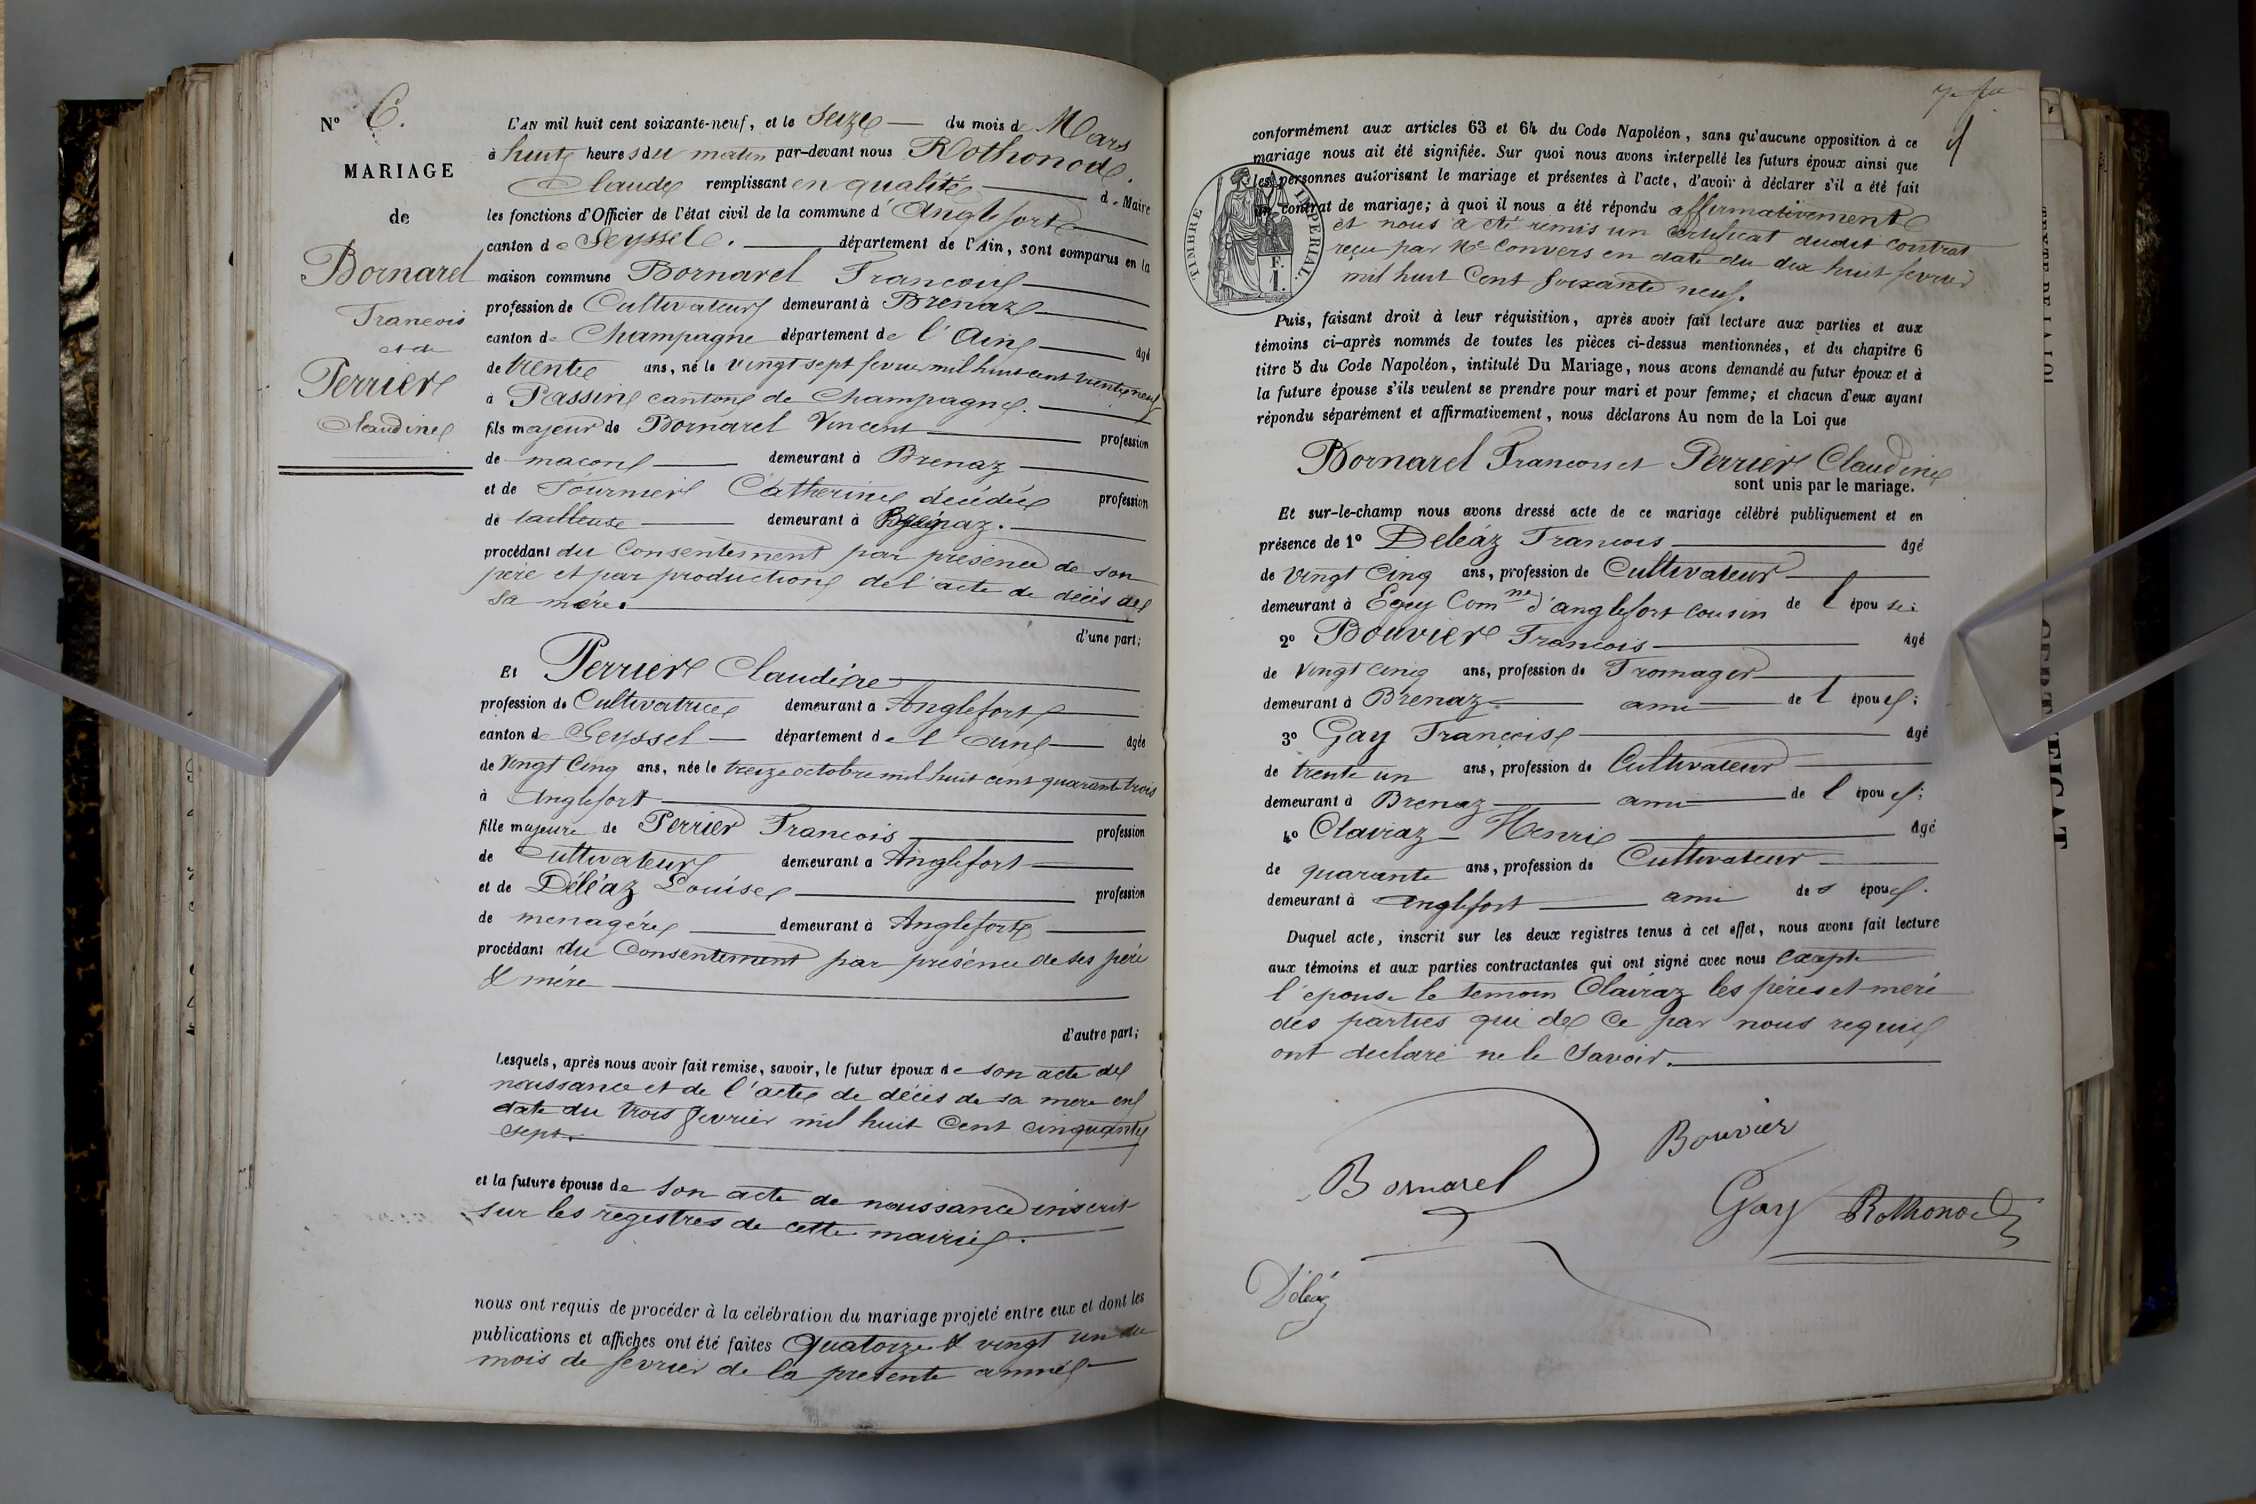 N° 6.
MARIAGE
de
Bornarel
Francois
et de
Perrier
Claudine
L'AN mil huit cent soixante-neuf, et le seize du mois de Mars
à huit heures du matin par-devant nous Rothonod
Claude remplissant en qualité de Maire
les fonctions d'Officier de l'état civil de la commune d'Anglefort
canton de Seyssel. département de l'Ain, sont comparus en la
maison commune Bornarel Francois
profession de Cultivateur demeurant à Brenaz
canton de Champagne département de l'Ain âgé
de trente ans, né le vingt sept fevrier mil huit cent trente neuf
à Passin canton de Champagne.
fils majeur de Bornarel Vincent profession
de macon demeurant à Brenaz
et de Fournier Catherine décédée profession
de tailleuse demeurant à Brénaz.
procédant du Consentement par présence de son
père et par production de l'acte de décès de
sa mère.
d'une part;
Et Perrier Claudine
profession de Cultivatrice demeurant à Anglefort
canton de Seyssel département de l'Ain âgée
de Vingt Cinq ans, née le treize octobre mil huit cent quarante trois
à Anglefort
fille majeure de Perrier Francois profession
de Cultivateur demeurant à Anglefort
et de Déléaz Louise profession
de menagère demeurant à Anglefort
procédant du Consentement par présence de ses père
& mère
d'autre part;
Lesquels, après nous avoir fait remise, savoir, le futur époux de son acte de
naissance et de l'acte de décès de sa mere en
date du trois fevrier mil huit Cent cinquante
sept.
et la future épouse de son acte de naissance inscrit
sur les registres de cette mairie.
nous ont requis de procéder à la célébration du mariage projeté entre eux et dont les
publications et affiches ont été faites quatorze & vingt un du
mois de fevrier de la presente année
conformément aux articles 63 et 64 du Code Napoléon, sans qu'aucune opposition à ce
mariage nous ait été signifiée. Sur quoi nous avons interpellé les futurs époux ainsi que
les personnes autorisant le mariage et présentes à l'acte, d'avoir à déclarer s'il a été fait
un contrat de mariage; à quoi il nous a été répondu affirmativement
et nous a été remis un certificat dudit contrat
reçu par Me Convers en date du dix huit fevrier
mil huit Cent soixante neuf.
TIMBRE IMPERIAL.
F.
1.
Puis, faisant droit à leur réquisition, après avoir fait lecture aux parties et aux
témoins ci-après nommés de toutes les pièces ci-dessus mentionnées, et du chapitre 6
titre 5 du Code Napoléon, intitulé Du Mariage, nous avons demandé au futur époux et à
la future épouse s'ils veulent se prendre pour mari et pour femme; et chacun d'eux ayant
répondu séparément et affirmativement, nous déclarons Au nom de la Loi que
Bornarel Francois et Perrier Claudine
sont unis par le mariage.
Et sur-le-champ nous avons dressé acte de ce mariage célébré publiquement et en
présence de 1° Deléaz Francois âgé
de vingt Cinq ans, profession de Cultivateur
demeurant à Egey Comne d'anglefort cousin de l'épouse;
2° Bouvier Francois âgé
de vingt cinq ans, profession de Fromager
demeurant à Brénaz ami de l'époux;
3° Gay François âgé
de trente un ans, profession de Cultivateur
demeurant à Brenaz ami de l'époux;
4° Clairaz Henri âgé
de quarante ans, profession de Cultivateur
demeurant à anglefort ami des époux.
Duquel acte, inscrit sur les deux registres tenus à cet effet, nous avons fait lecture
aux témoins et aux parties contractantes qui ont signé avec nous Excepté
l'épouse le temoin Clairaz les pères et mère
des parties qui de Ce par nous requis
ont declaré ne le Savoir.
Bouvier
Bornarel
Gay Rothonod
Déléaz